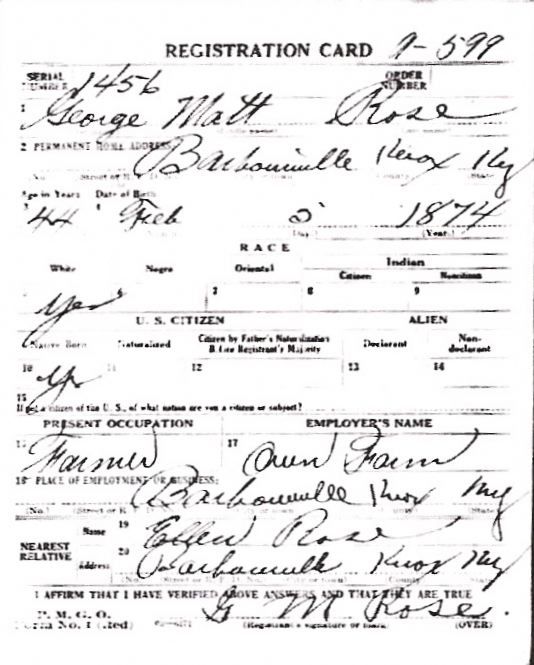 REGISTRATION CARD 9-599
SERIAL NUMBER 1456 ORDER NUMBER
1 George Matt Rose
2 PERMANENT HOME ADDRESS:
Barbourville Knox Ky
(State)
Age in Years Date of Birth
3 44 4 Feb 5 1874
(Day.) (Year.)
RACE
White Negro Oriental Indian
Citizen Noncitizen
Yes 6 7 8 9
U. S. CITIZEN ALIEN
Native Born Naturalized Citizen by Father's Naturalization Before Registrant's Majority Declarant Non-declarant
10 Yes 11 12 13 14
15
If not a citizen of the U. S., of what nation are you a citizen or subject?
PRESENT OCCUPATION EMPLOYER'S NAME
16 Farmer 17 Own Farm
18 PLACE OF EMPLOYMENT OR BUSINESS:
Barbourville Knox Ky
(No.) (State)
NEAREST RELATIVE
Name 19 Ellen Rose
Address 20 Barbourville Knox Ky
I AFFIRM THAT I HAVE VERIFIED ABOVE ANSWERS AND THAT THEY ARE TRUE
G M Rose.
P. M. G. O.
Form No. 1 (Red) (Registrant's signature or mark) (OVER)